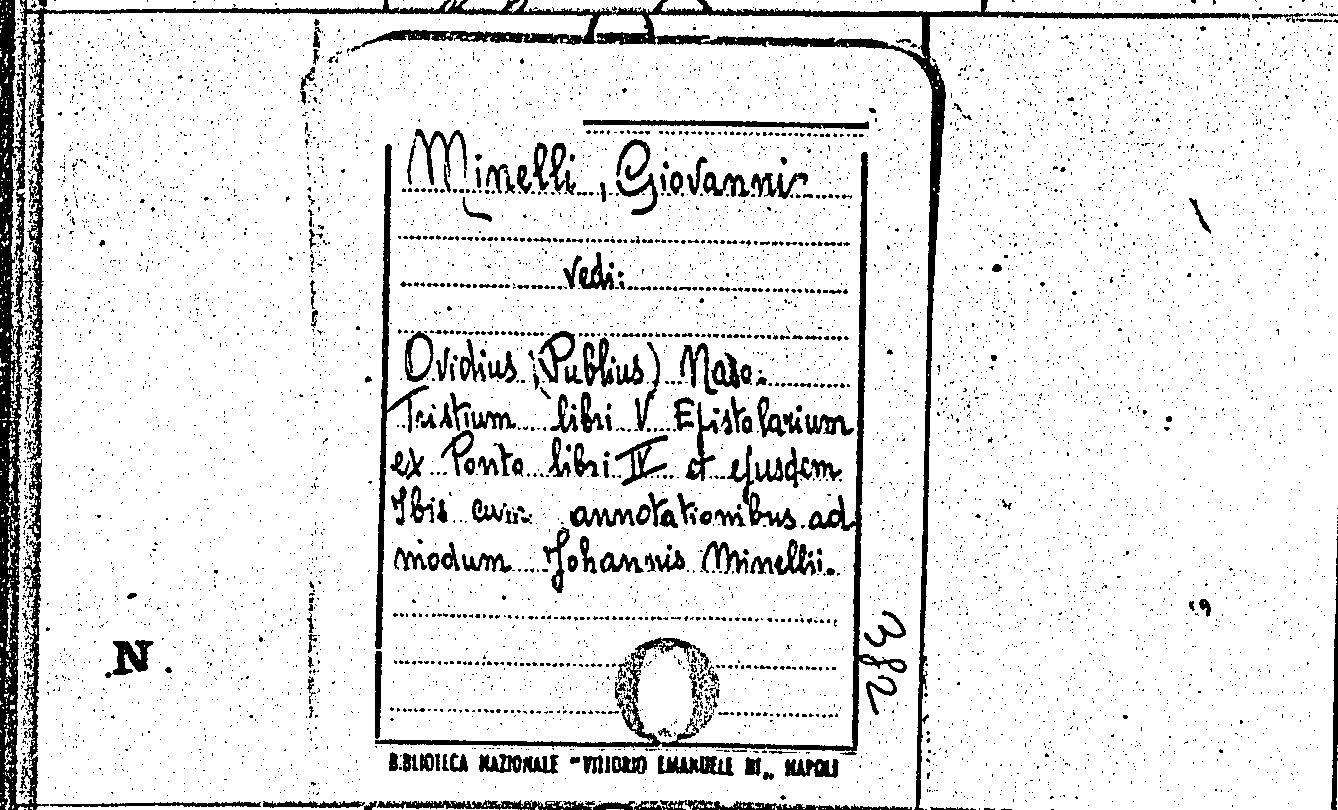 Minelli, Giovanni
vedi:
Ovidius (Publius) Naso.
Tristium libri V Epistolarium
ex Ponto libri IV et ejusdem
Ibis cum annotationibus ad
modum Johannis Minellii.
BIBLIOTECA NAZIONALE "VITTORIO EMANUELE III" NAPOLI
N.